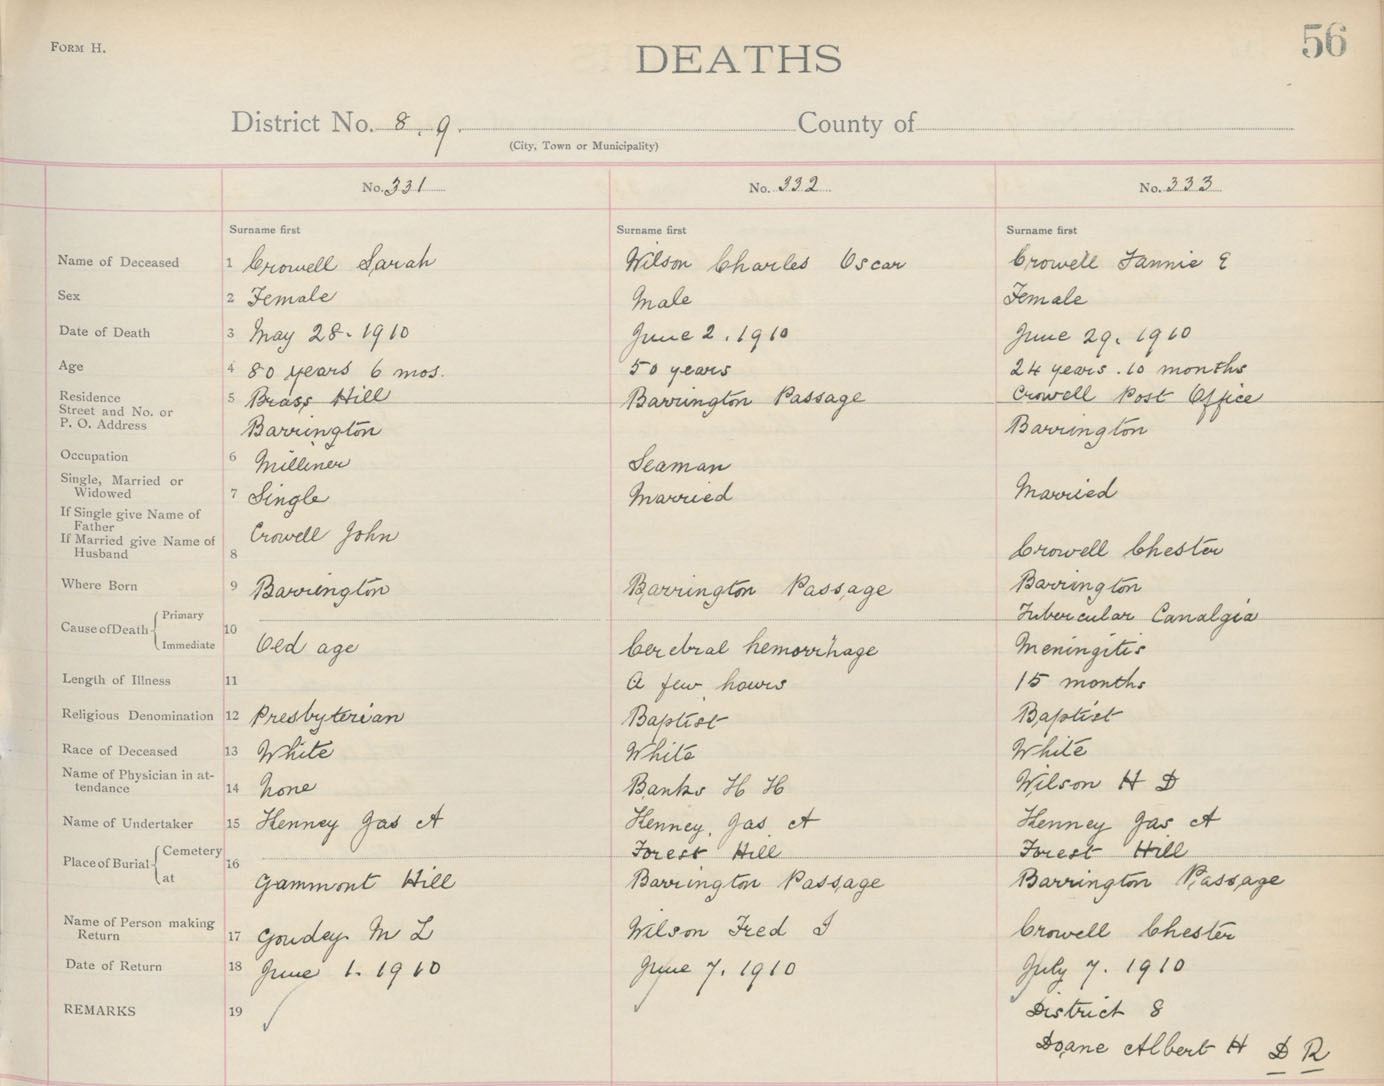 FORM H.
56
DEATHS
District No. 8. 9. County of
(City, Town or Municipality)
No. 331 No. 332 No. 333
Surname first Surname first Surname first
Name of Deceased 1 Crowell Sarah Wilson Charles Oscar Crowell Fannie E
Sex 2 Female Male Female
Date of Death 3 May 28. 1910 June 2. 1910 June 29. 1910
Age 4 80 years 6 mos. 50 years 24 years. 10 months
Residence 5 Brass Hill Barrington Passage Crowell Post Office
Street and No. or
P. O. Address Barrington Barrington
Occupation 6 Milliner Seaman
Single, Married or
Widowed 7 Single Married Married
If Single give Name of
Father Crowell John
If Married give Name of
Husband 8 Crowell Chester
Where Born 9 Barrington Barrington Passage Barrington
Cause of Death Primary 10 Tubercular
Immediate Old age Cerebral hemorrhage Meningitis
Length of Illness 11 A few hours 15 months
Religious Denomination 12 Presbyterian Baptist Baptist
Race of Deceased 13 White White White
Name of Physician in at-
tendance 14 None Banks H H Wilson H D
Name of Undertaker 15 Kenney Jas A Kenney, Jas A Kenney Jas A
Place of Burial Cemetery 16 Forest Hill Forest Hill
at Gammont Hill Barrington Passage Barrington Passage
Name of Person making
Return 17 Goudey M L Wilson Fred Crowell Chester
Date of Return 18 June 1. 1910 June 7. 1910 July 7. 1910
REMARKS 19 District 8
Doane Albert H D R